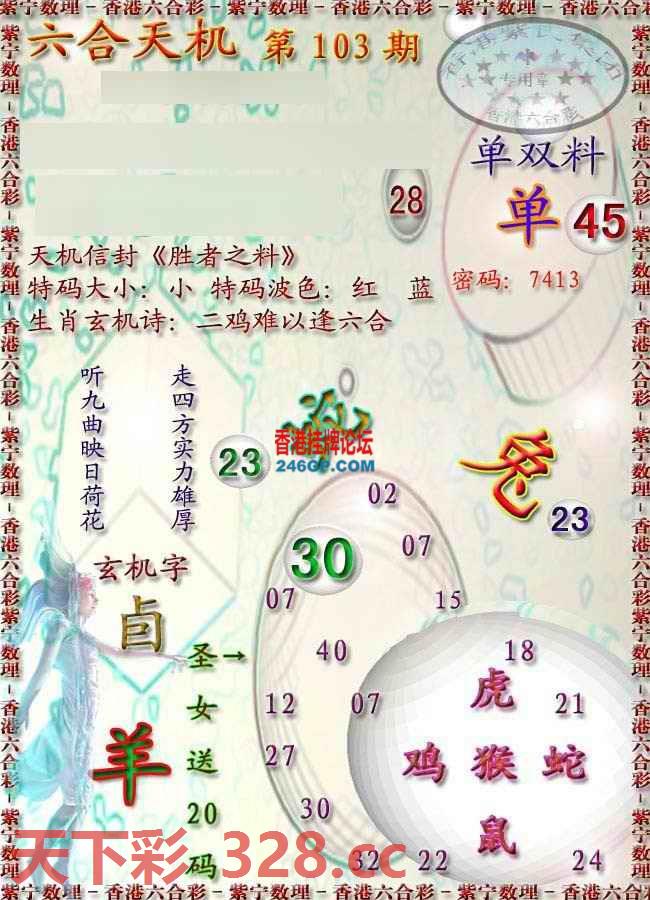 紫宁数理－香港六合彩－紫宁数理－香港六合彩－紫宁数理－香港六合彩
六合天机 第 103 期
专用章
香港六合彩
单双料
单 45
28
天机信封《胜者之料》
特码大小：小 特码波色：红 蓝
密码：7413
生肖玄机诗：二鸡难以逢六合
走四方实力雄厚
听九曲映日荷花
香港挂牌论坛
246GP.COM
23
兔
23
02
30
07
07
15
玄机字
卣
圣女送20码
→
40
18
虎
12
07
21
羊
27
鸡 猴 蛇
30
鼠
32
22
24
天下彩.328.cc
紫宁数理－香港六合彩－紫宁数理－香港六合彩－紫宁数理－香港六合彩